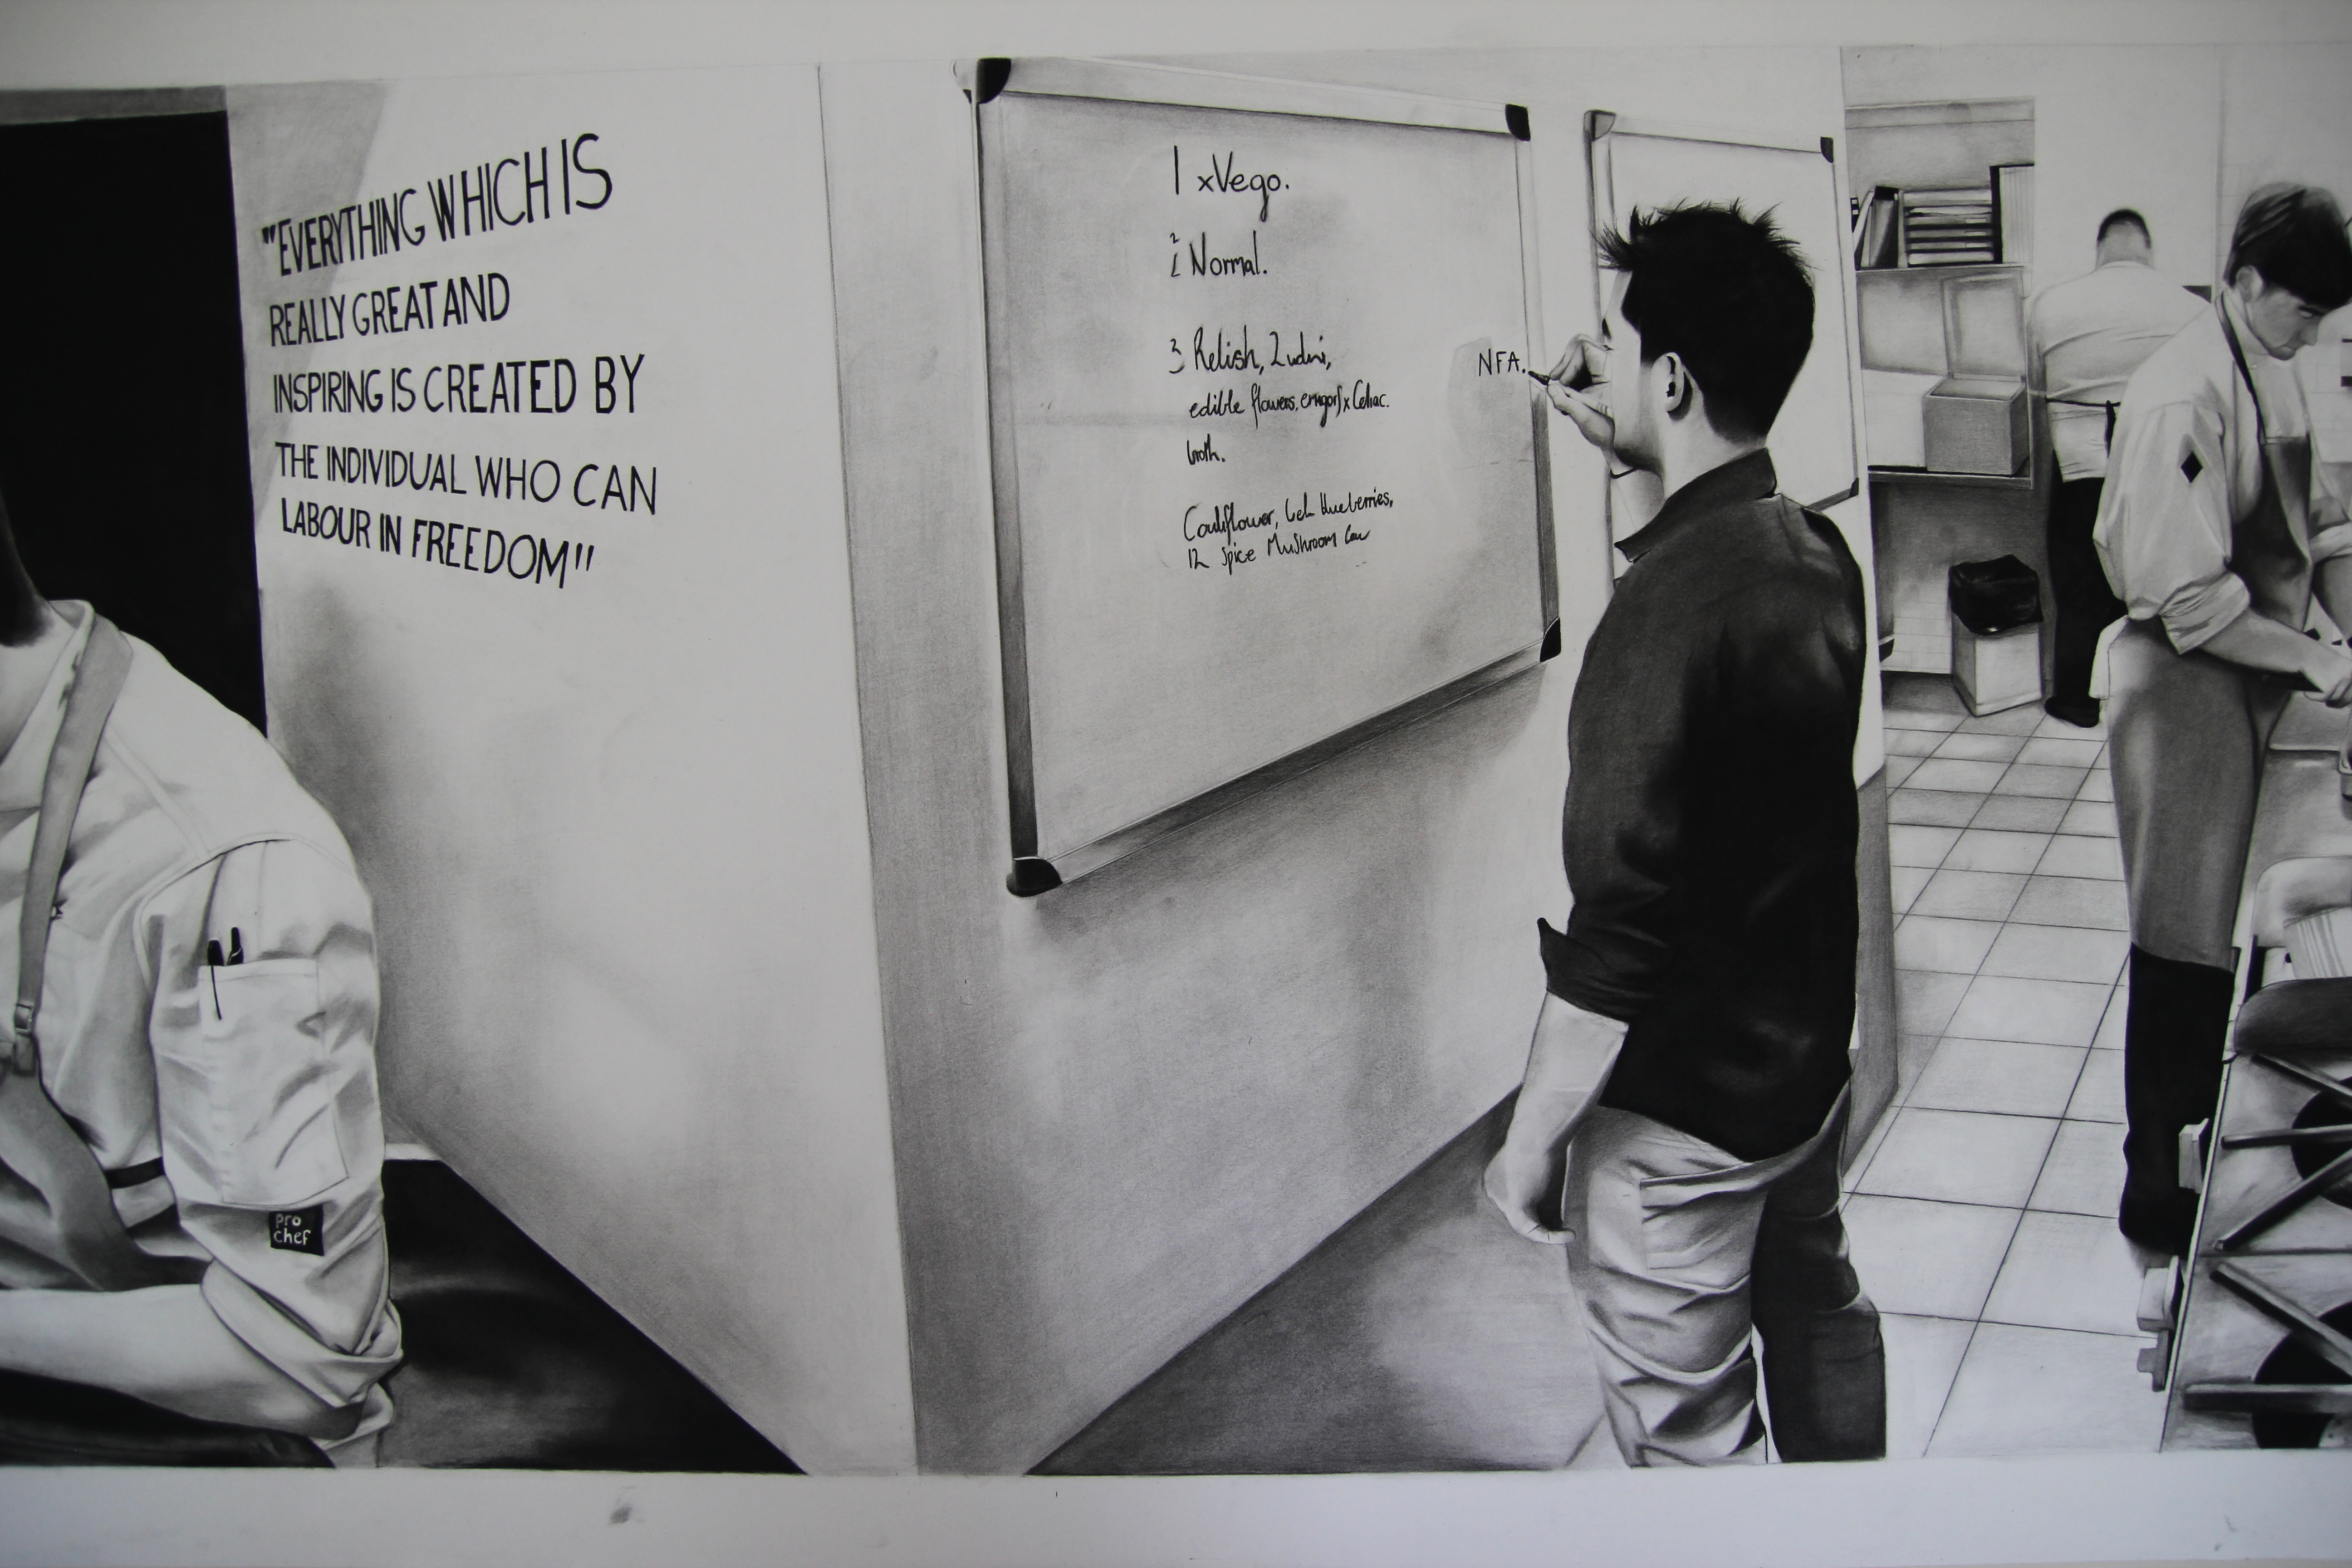 "EVERYTHING WHICH IS
REALLY GREAT AND
INSPIRING IS CREATED BY
THE INDIVIDUAL WHO CAN
LABOUR IN FREEDOM"
1 xVego.
2 Normal.
3 Relish,
edible flowers, x Celiac.
broth.
Cauliflower, Blueberries,
12 Spice Mushroom
NFA.
pro
chef